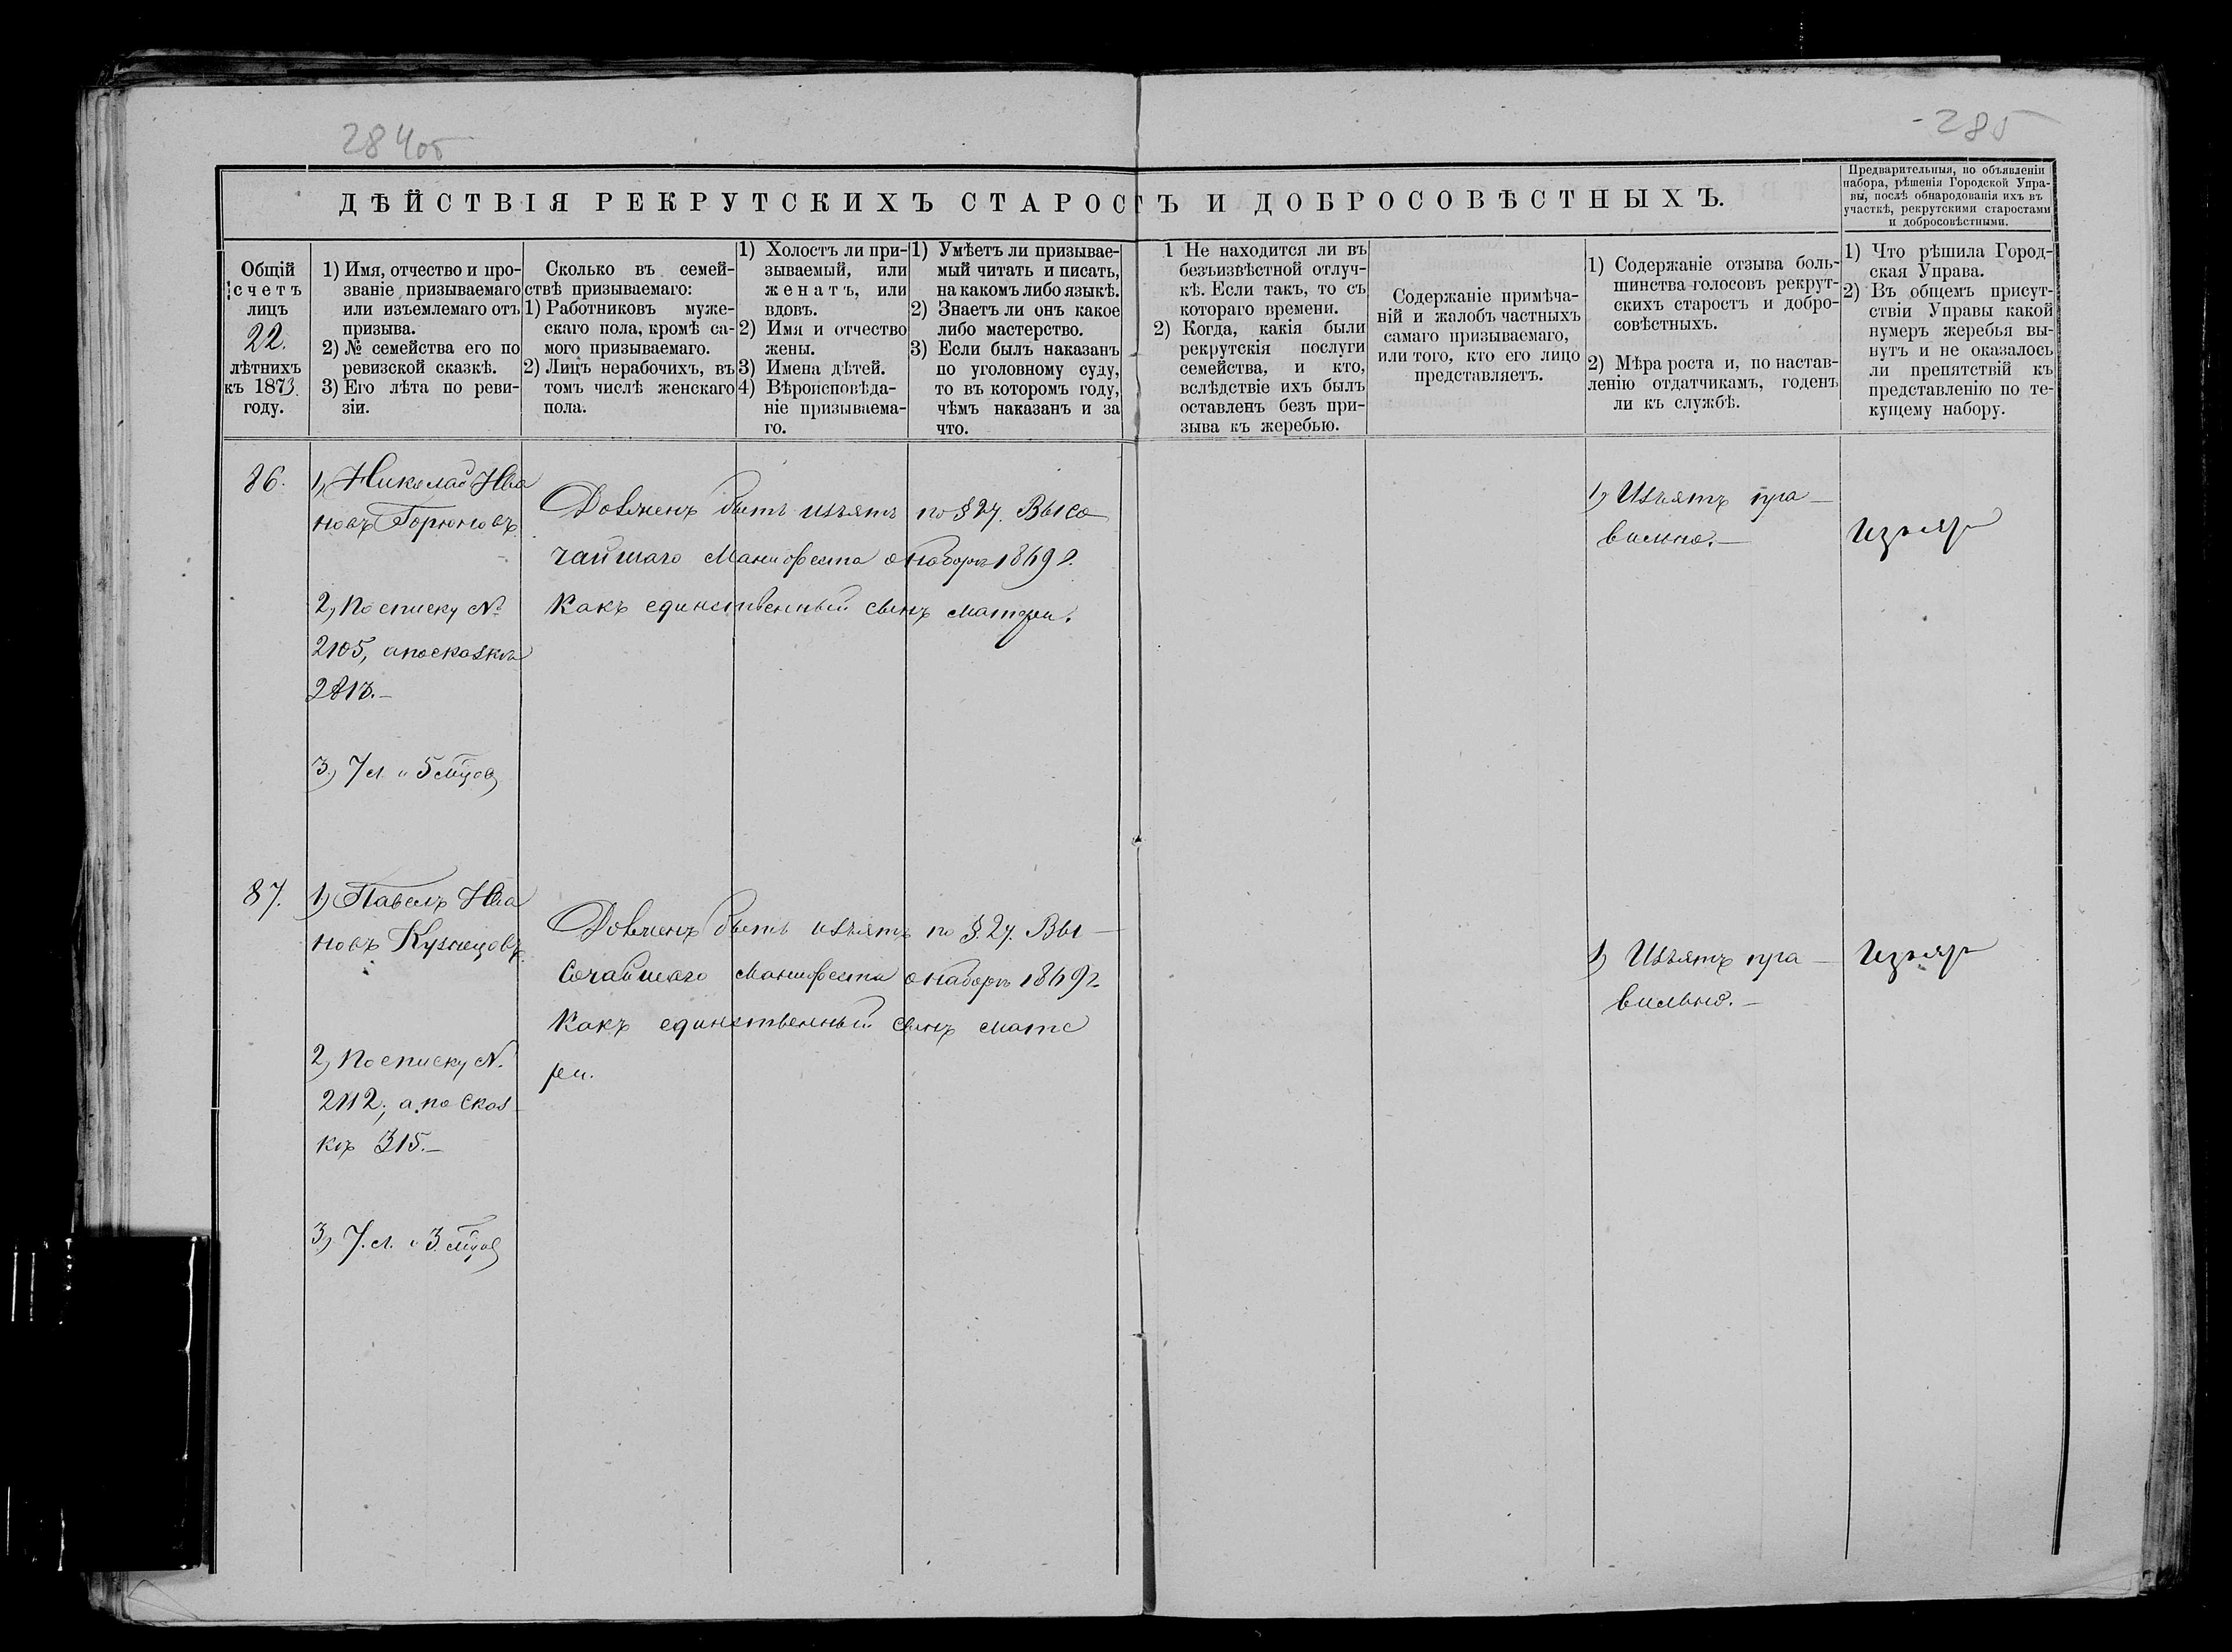 284об
285
ДѢЙСТВІЯ РЕКРУТСКИХЪ СТАРОСТЪ И ДОБРОСОВѢСТНЫХЪ.
Предварительныя, по объявленіи
набора, рѣшенія Городской Упра-
вы, послѣ обнародованія ихъ въ
участкѣ, рекрутскими старостами
и добросовѣстными.
Общій
счетъ
лицъ
22.
лѣтнихъ
къ 1873.
году.
1) Имя, отчество и про-
званіе призываемаго
или изъемлемаго отъ
призыва.
2) № семейства его по
ревизской сказкѣ.
3) Его лѣта по реви-
зіи.
Сколько въ семей-
ствѣ призываемаго:
1) Работниковъ муже-
скаго пола, кромѣ са-
мого призываемаго.
2) Лицъ нерабочихъ, въ
томъ числѣ женскаго
пола.
1) Холостъ ли при-
зываемый, или
женатъ, или
вдовъ.
2) Имя и отчество
жены.
3) Имена дѣтей.
4) Вѣроисповѣда-
ніе призываема-
го.
1) Умѣетъ ли призывае-
мый читать и писать,
на какомъ либо языкѣ.
2) Знаетъ ли онъ какое
либо мастерство.
3) Если былъ наказанъ
по уголовному суду,
то въ которомъ году,
чѣмъ наказанъ и за
что.
1 Не находится ли въ
безъизвѣстной отлуч-
кѣ. Если такъ, то съ
котораго времени.
2) Когда, какія были
рекрутскія послуги
семейства, и кто,
вслѣдствіе ихъ былъ
оставленъ безъ при-
зыва къ жеребью.
Содержаніе примѣча-
ній и жалобъ частныхъ
самаго призываемаго,
или того, кто его лицо
представляетъ.
1) Содержаніе отзыва боль-
шинства голосовъ рекрут-
скихъ старостъ и добро-
совѣстныхъ.
2) Мѣра роста и, по настав-
ленію отдатчикамъ, годенъ
ли къ службѣ.
1) Что рѣшила Город-
ская Управа.
2) Въ общемъ присут-
ствіи Управы какой
нумеръ жеребья вы-
нутъ и не оказалось
ли препятствій къ
представленію по те-
кущему набору.
86.
1) Николай Ива
новъ Горюновъ.
2) По списку №
2105, а по сказкѣ
2813.—
3) 7 л. и 5 мцов
Долженъ быть изъятъ по § 27. Высо
чайшаго Манифеста о наборѣ 1869 г.
Какъ единственный сынъ матери.
1) Изъятъ пра—
вильно.—
Изъят
87.
1) Павелъ Ива
новъ Кузнецовъ.
2) По списку №.
2112; а по сказ
кѣ 315.—
3) 7. л. и 3. мцов
Долженъ быть изъятъ по §. 27. Вы—
сочайшаго Манифеста о наборѣ 1869 г.
Какъ единственный сынъ мате
ри.
1) Изъятъ пра—
вильно.—
Изъят